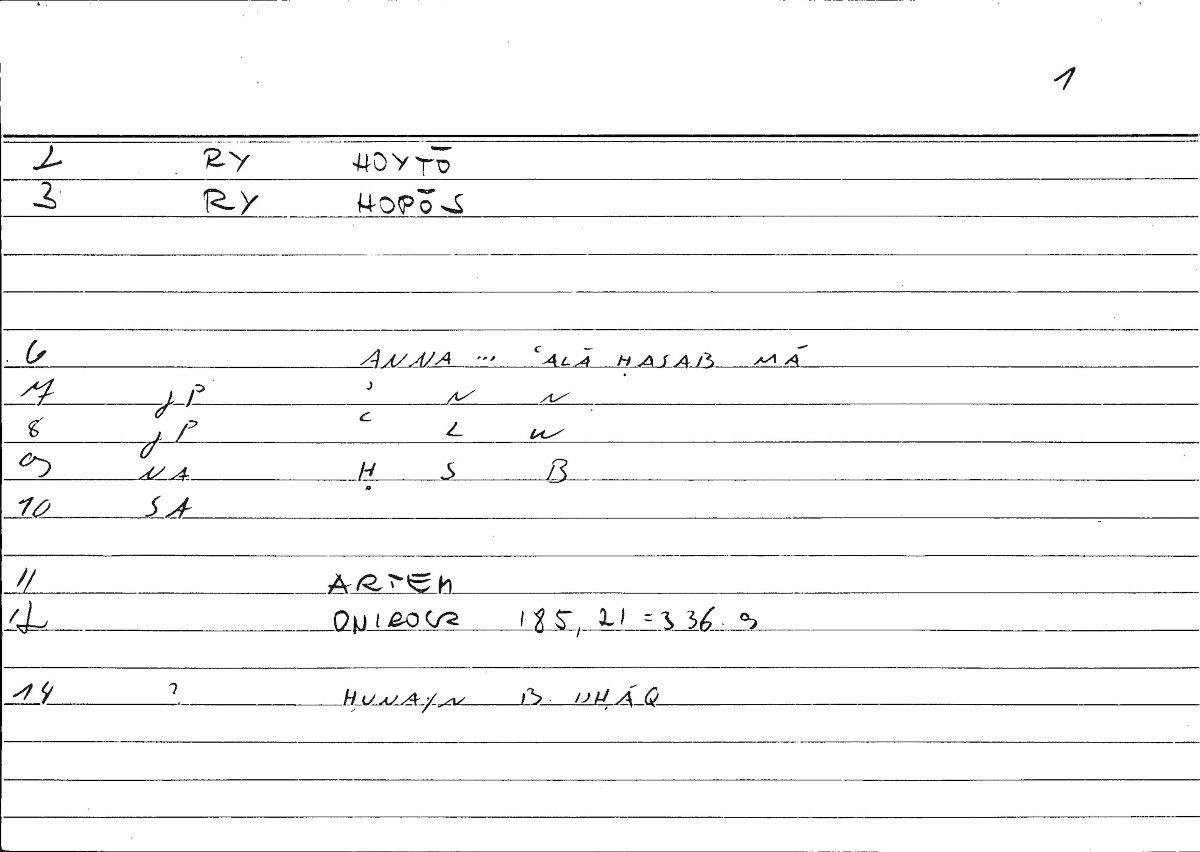 1
2 RY HOYTŌ
3 RY HOPŌS
6 ANNA ... ʿALĀ ḤASAB MĀ
7 JP ʾ N N
8 JP ʿ L W
9 NA Ḥ S B
10 SA
11 ARTEM
12 ONIROCR 185, 21 = 336. 9
14 ? ḤUNAYN B. ISḤĀQ